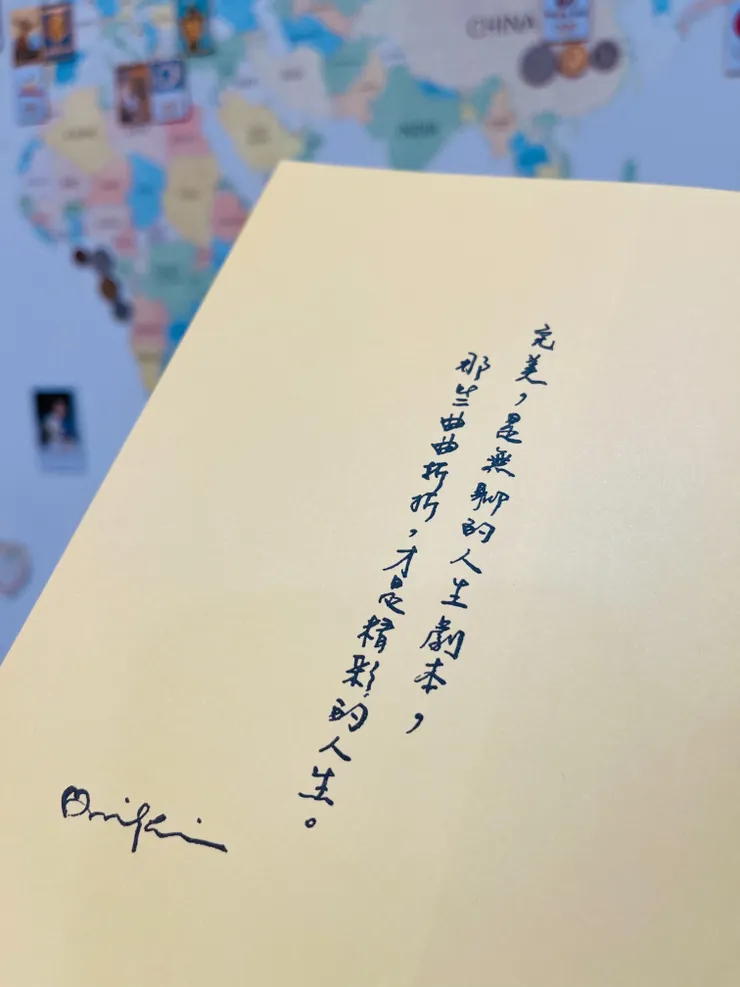 完美，是無聊的人生劇本，
那些曲曲折折，才是精彩的人生。
CHINA